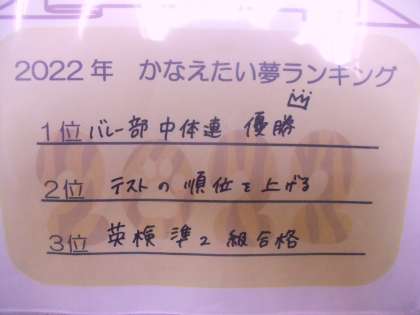 2022年 かなえたい夢ランキング
1位 バレー部 中体連 優勝
2位 テストの順位を上げる
3位 英検 準2級合格
2022